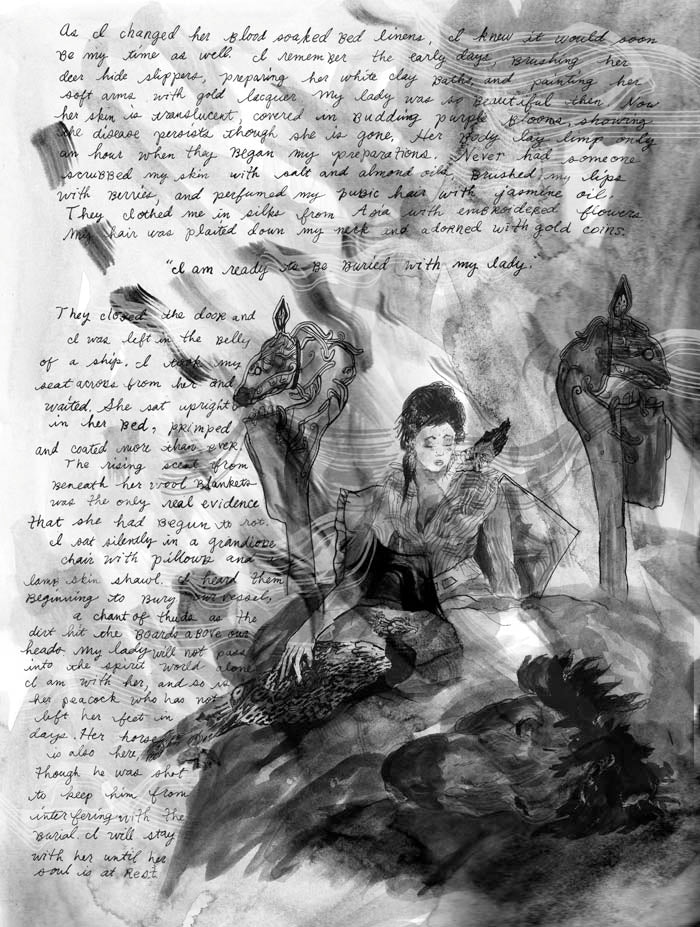 As I changed her blood soaked bed linens, I knew it would soon
be my time as well. I remember the early days, brushing her
deer hide slippers, preparing her white clay baths, and painting her
soft arms with gold lacquer. My lady was so beautiful then. Now
her skin is translucent, covered in budding purple blooms, showing
the disease persists though she is gone. Her body lay limp only
an hour when they began my preparations. Never had someone
scrubbed my skin with salt and almond oils, brushed my lips
with berries, and perfumed my pubic hair with jasmine oil.
They clothed me in silks from Asia with embroidered flowers
My hair was plaited down my neck and adorned with gold coins.
"I am ready to be buried with my lady."
They closed the door and
I was left in the belly
of a ship. I took my
seat across from her and
waited. She sat upright
in her bed, primped
and coated more than ever.
The rising scent from
beneath her wool blankets
was the only real evidence
that she had begun to rot.
I sat silently in a grandiose
chair with pillows and
lamb skin shawl. I heard them
beginning to bury our vessel,
a chant of thuds as the
dirt hit the boards above our
heads my lady will not pass
into the spirit world alone
I am with her, and so is
her peacock who has not
left her feet in
days. Her horse
is also here,
though he was shot
to keep him from
interfering with the
burial. I will stay
with her until her
soul is at rest